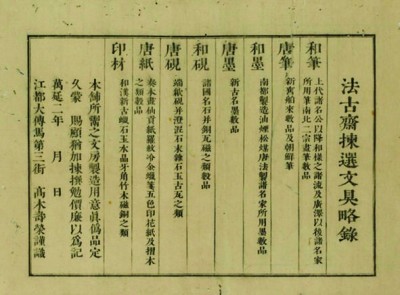 法古齋揀選文具略錄
和筆
上代諸公以降和樣之諸流及唐澤以後諸名家
所用筆南北二宗畫筆數品
唐筆
新舊舶來數品及朝鮮筆
和墨
南都製造油煙松煤唐法製諸名家所用墨數品
唐墨
新古名墨數品
和硯
諸國名石并銅瓦磁之類數品
唐硯
端歙硯并澄泥石末雜石玉古瓦之類
唐紙
卷本畫仙貢紙羅紋冷金蠟箋五色印花紙及摺本
之類數品
印材
和漢新古蠟石玉水晶牙角竹木磁銅之類
本舖所鬻之文房製造用意眞僞品定
久蒙 賜顧猶加揀撰勉價廉以爲記
萬延二年 月 日
江都大傳馬第三街 髙木壽榮謹識